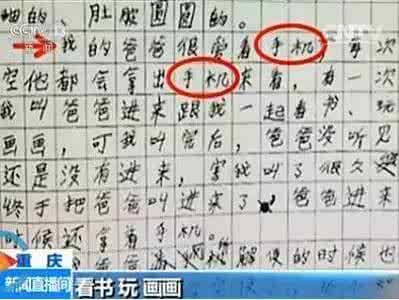 细的、肚皮圆圆的。
我的爸爸很爱看手机,每次
空他都会拿出手机来看,有一次
我叫爸爸进来跟我一起看书、玩
画画,可我叫完后,爸爸没听见
还是没有进来,害我叫了很久
终于把爸爸叫进来了 爸爸进来
时候还拿着手机。
的时候也
重庆
新闻直播间 看书 玩 画画